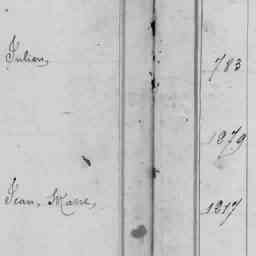 Julien, 783
1879
Jean, Marie, 1217